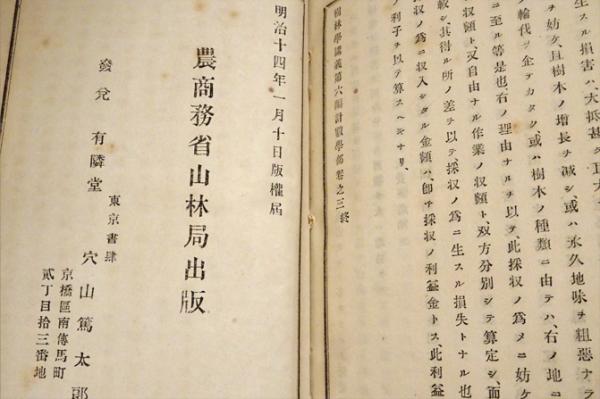 生スル損害ハ、大抵甚タ
ヲ妨ケ、且樹木ノ増長ヲ減シ、或ハ永久地味ヲ粗惡ナラ
ノ輪伐ヲ企テカタク、或ハ樹木ノ種類ニ由テハ、右ノ地ニ
ニ至ル等是也、右ノ理由ナルヲ以テ、此採収ノ爲メニ妨ケ
収額ト、又自由ナル作業ノ収額ト、双方分別シテ算定シ、而
較シ、其得ル所ノ差ヲ以テ、採収ノ爲ニ生スル損失トナル也
収ノ爲ニ収入シタル金額ハ、卽チ採収ノ利益金トス、此利益
ノ利子ヲ以テ算スヘキナリ、
林學講義第六編計數學部卷之三終
明治十四年一月十日版權屆
農商務省山林局出版
東京書肆
發兌 有隣堂 穴山篤太郎
京橋區南傳馬町
貳丁目拾三番地